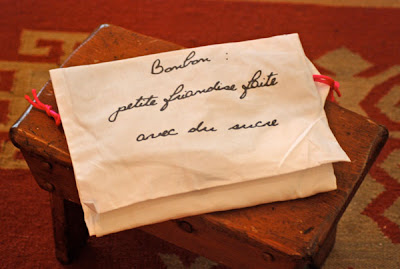 Bonbon :
petite friandise faite
avec du sucre